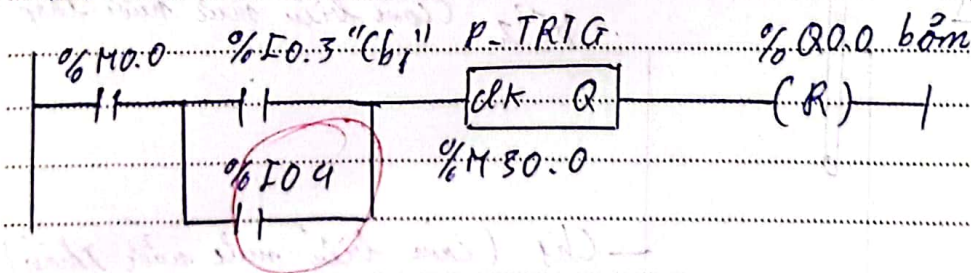 %M0.0 %I0.3 "Cb1" P_TRIG %Q0.0 bơm
clk Q (R)
%I0.4 %M30.0